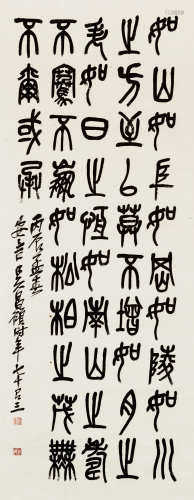 如山如阜如岡如陵如川
之方至以莫不增如月之
升如日之恆如南山之壽
不騫不崩如松柏之茂無
不爾或承
丙辰孟春
安吉吳昌碩時年七十又三